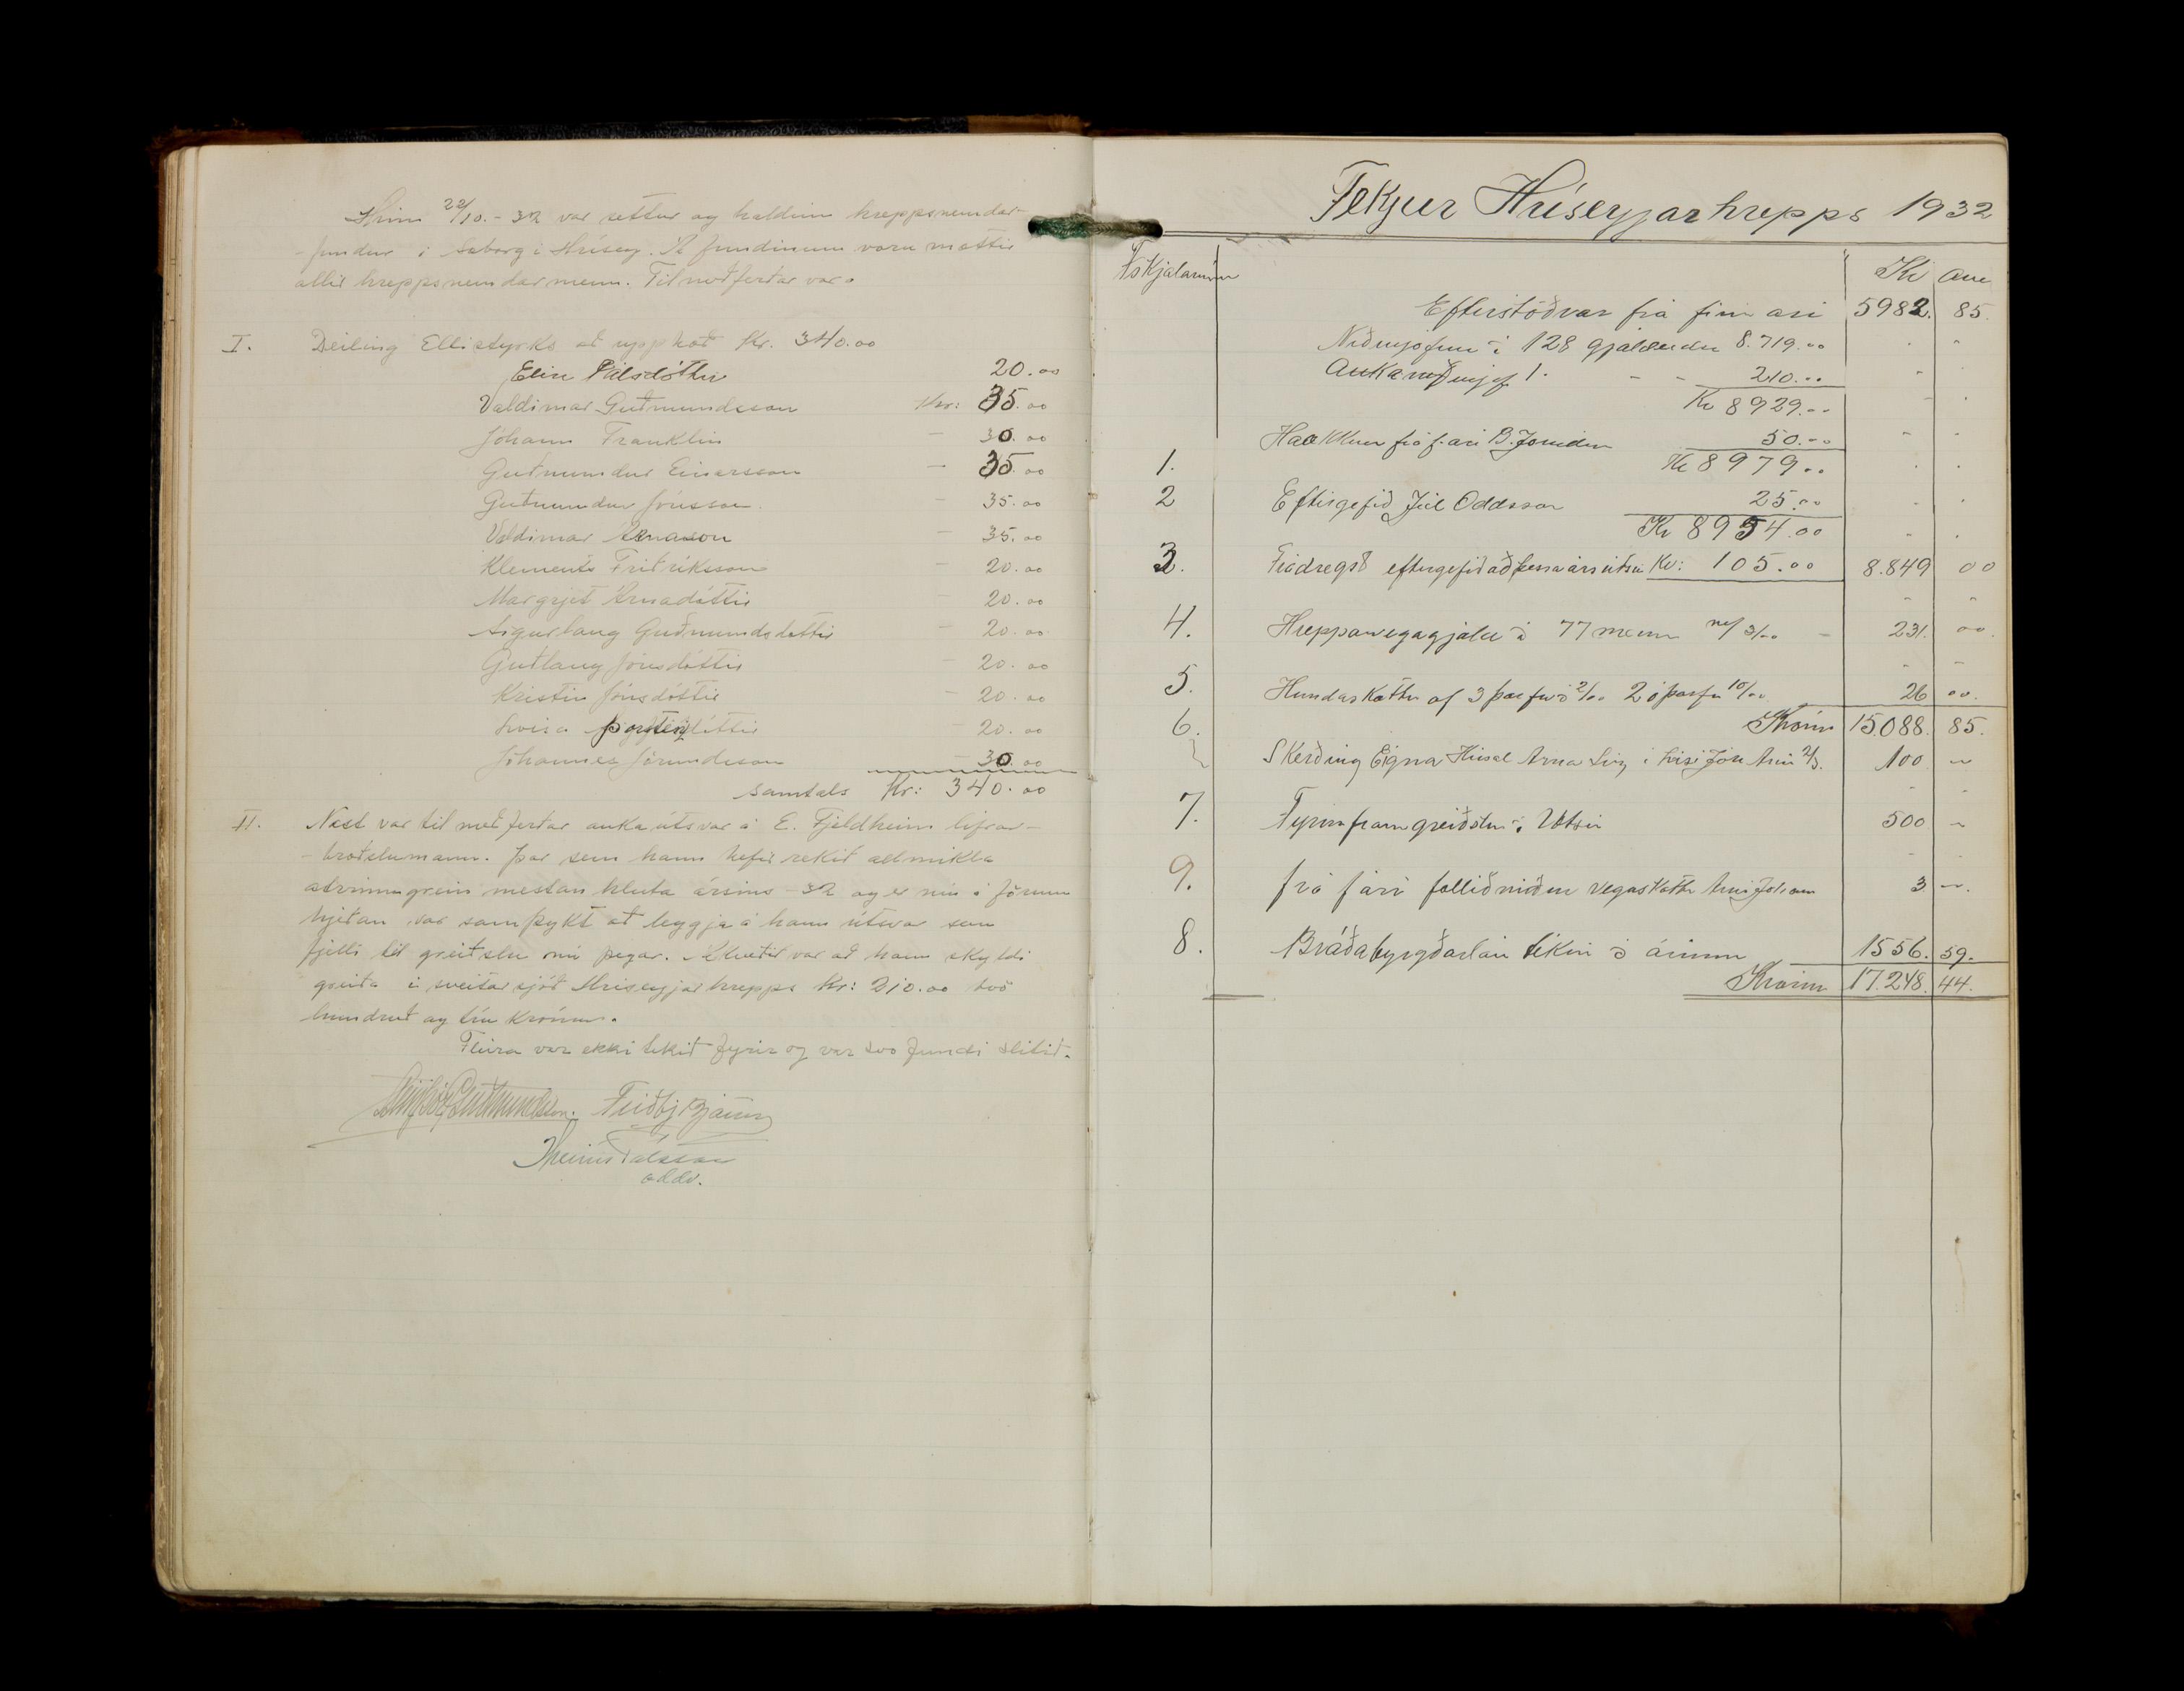 Hinn 22/10.- 32 var settur og haldinn hreppsnemdar-
- fundur í Saborg í Hrísey. Á fundinum voru mættir
allir hreppsnemdarmenn. Til meðferðar var.
I. Deiling Ellistyrks að upphæð Kr. 340.00
Elin Pálsdóttir 20.00
Valdimar Guðmundsson Kr: 35.00
Jóhann Franklin — 30.00
Guðmundur Einarsson — 35.00
Guðmundur Jónsson — 35.00
Valdimar Árnason — 35.00
Klements Friðriksson — 20.00
Margrjet Árnadóttir — 20.00
Sigurlaug Guðmundsdóttir — 20.00
Guðlaug Jónsdóttir — 20.00
Kristin Jónsdóttir — 20.00
dóttir — 20.00
Jóhannes Jörundsson — 30.00
Samtals Kr: 340.00
II. Næst var til meðferðar auka útsvar á E. Fjeldheim lifrar-
- bræðslumann. Þar sem hann hefir rekið allmikla
atvinnugrein mestan hluta ársins - 32 og er nú á förum
hjeðan var samþykt að leggja á hann útsvar sem
fjelli til greiðslu nú þegar. Ákveðið var að hann skyldi
greiða í sveitarsjóð Hriseyjarhrepps Kr: 210.00 tvö
hundruð og tíu krónur.
Fleira var ekki tekið fyrir og var svo fundi slitið.
Guðmundsson. Friðbj Björnsson
Hreinn Pálsson
oddv.
Tekjur Hríseyjarhrepps 1932
Fskjalanúm
Kr Aur
Eftirstöðvar frá fyrra ári 5982. 85.
Niðurjöfnun á 128 gjaldendur 8.719.00
Aukaniðurjöf 1. - - 210.00
Kr 8929.00
1. Hækkun frá f. ári B. Jörundur 50.00
Kr 8979.00
2 Eftirgefið Júl Oddsson 25.00
Kr 8954.00
3. Frádregst eftirgefið að þessa árs útsv. Kr: 105.00 8.849 00
4. Hreppavegagjald á 77 menn m/ 3/00 - 231. 00.
5. Hundaskattur af 3 þarfur á 2/00 2 óþarfur 10/00 26 00.
6. Krónur 15.088. 85.
Skerðing Eigna 100 -
7. Fyrirframgreiðslur á Útsv 500 -
9. frá f ári fallið niður vegaskattur 3 -.
8. Bráðabyrgðarlán tekin á árinu 1556. 59.
Krónur 17.248. 44.